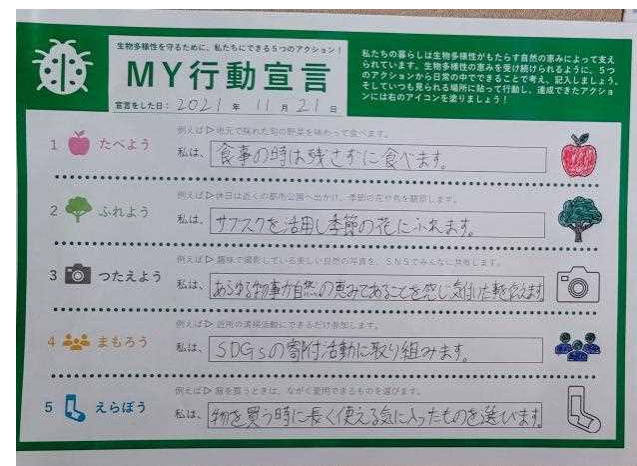 生物多様性を守るために、私たちにできる5つのアクション!
MY行動宣言
宣言をした日: 2021 年 11 月 21 日
私たちの暮らしは生物多様性がもたらす自然の恵みによって支え
られています。生物多様性の恵みを受け続けられるように、5つ
のアクションから日常の中でできることで考え、記入しましょう。
そしていつも見られる場所に貼って行動し、達成できたアクショ
ンには右のアイコンを塗りましょう!
例えば▷地元で採れた旬の野菜を味わって食べます。
1 たべよう 私は、食事の時は残さずに食べます。
例えば▷休日は近くの都市公園へ出かけ、季節の花や鳥を観察します。
2 ふれよう 私は、サブスクを活用し季節の花にふれます。
例えば▷趣味で撮影している美しい自然の写真を、SNSでみんなに共有します。
3 つたえよう 私は、あらゆる物事が自然の恵みであることを感じ気付いた事を伝えます
例えば▷近所の清掃活動にできるだけ参加します。
4 まもろう 私は、SDGsの寄付活動に取り組みます。
例えば▷服を買うときは、ながく愛用できるものを選びます。
5 えらぼう 私は、物を買う時に長く使える気に入ったものを選びます。